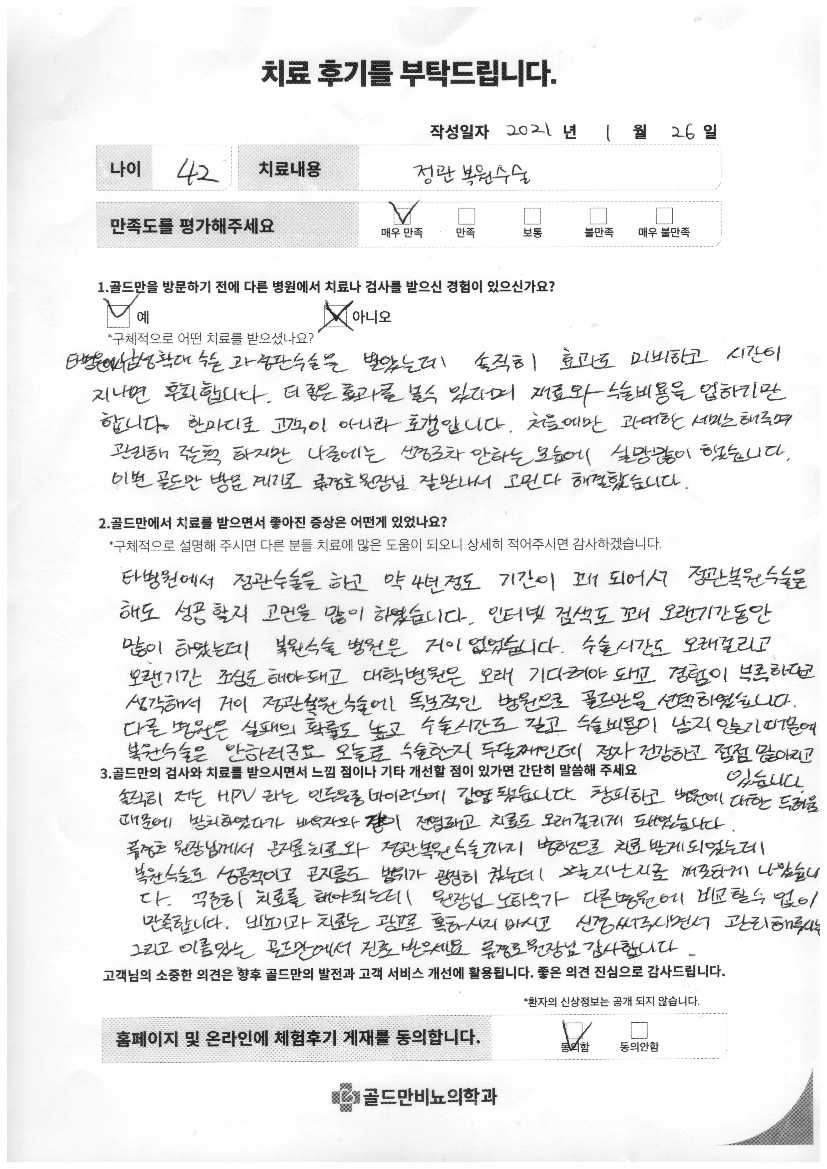 치료 후기를 부탁드립니다.
작성일자 2021 년 1 월 26 일
나이 42 치료내용 정관 복원수술
만족도를 평가해주세요 매우 만족 만족 보통 불만족 매우 불만족
1.골드만을 방문하기 전에 다른 병원에서 치료나 검사를 받으신 경험이 있으신가요?
예 아니오
*구체적으로 어떤 치료를 받으셨나요?
타병원에서 남성확대 수술 과 정관수술을 받았는데 솔직히 효과도 미비하고 시간이
지나면 후회합니다. 더 좋은 효과를 볼수 있다며 재료와 수술비용을 업하기만
합니다. 한마디로 고객이 아니라 호갱입니다. 처음에만 과대한 서비스해주며
관리해 줄듯 하지만 나중에는 신경조차 안하는 모습에 실망많이 했습니다.
이번 골드만 방문 계기로 류경호원장님 잘만나서 고민다 해결했습니다.
2.골드만에서 치료를 받으면서 좋아진 증상은 어떤게 있었나요?
*구체적으로 설명해 주시면 다른 분들 치료에 많은 도움이 되오니 상세히 적어주시면 감사하겠습니다.
타병원에서 정관수술을 하고 약 4년정도 기간이 꽤 되어서 정관복원수술은
해도 성공할지 고민을 많이 하였습니다. 인터넷 검색도 꽤 오랜기간동안
많이 하였는데 복원수술 병원은 거이 없었습니다. 수술시간도 오래걸리고
오랜기간 조심도 해야돼고 대학병원은 오래 기다려야 돼고 경험이 부족하다고
생각해서 거이 정관복원 수술에 독보적인 병원으로 골드만을 선택하였습니다.
다른 병원은 실패의 확률도 높고 수술시간도 길고 수술비용이 남지 않기때문에
복원수술은 안하러군요 오늘로 수술한지 두달째인데 정자 건강하고 점점 많아지고
있습니다.
3.골드만의 검사와 치료를 받으시면서 느낌 점이나 기타 개선할 점이 있가면 간단히 말씀해 주세요
솔직히 저는 HPV 라는 인두유종바이러스에 감염 됐습니다. 창피하고 병원에 대한 두려움
때문에 방치하였다가 배우자와 같이 전염돼고 치료도 오래걸리게 돼었습니다.
류경호 원장님께서 곤지름치료와 정관복원수술까지 병행으로 치료 받게되었는데
복원수술도 성공적이고 곤지름도 범위가 굉장히 컸는데 오늘지난지로 깨끗하게 나았습니
다. 꾸준히 치료를 해야되는데 원장님 노하우가 다른병원에 비교할수 없이
만족합니다. 비뇨기과 치료는 광고로 혹하시지 마시고 신경써주시면서 관리해주시는
그리고 이름있는 골드만에서 진료 받으세요 류경호원장님 감사합니다
고객님의 소중한 의견은 향후 골드만의 발전과 고객 서비스 개선에 활용됩니다. 좋은 의견 진심으로 감사드립니다.
*환자의 신상정보는 공개 되지 않습니다.
홈페이지 및 온라인에 체험후기 게재를 동의합니다. 동의함 동의안함
골드만비뇨의학과